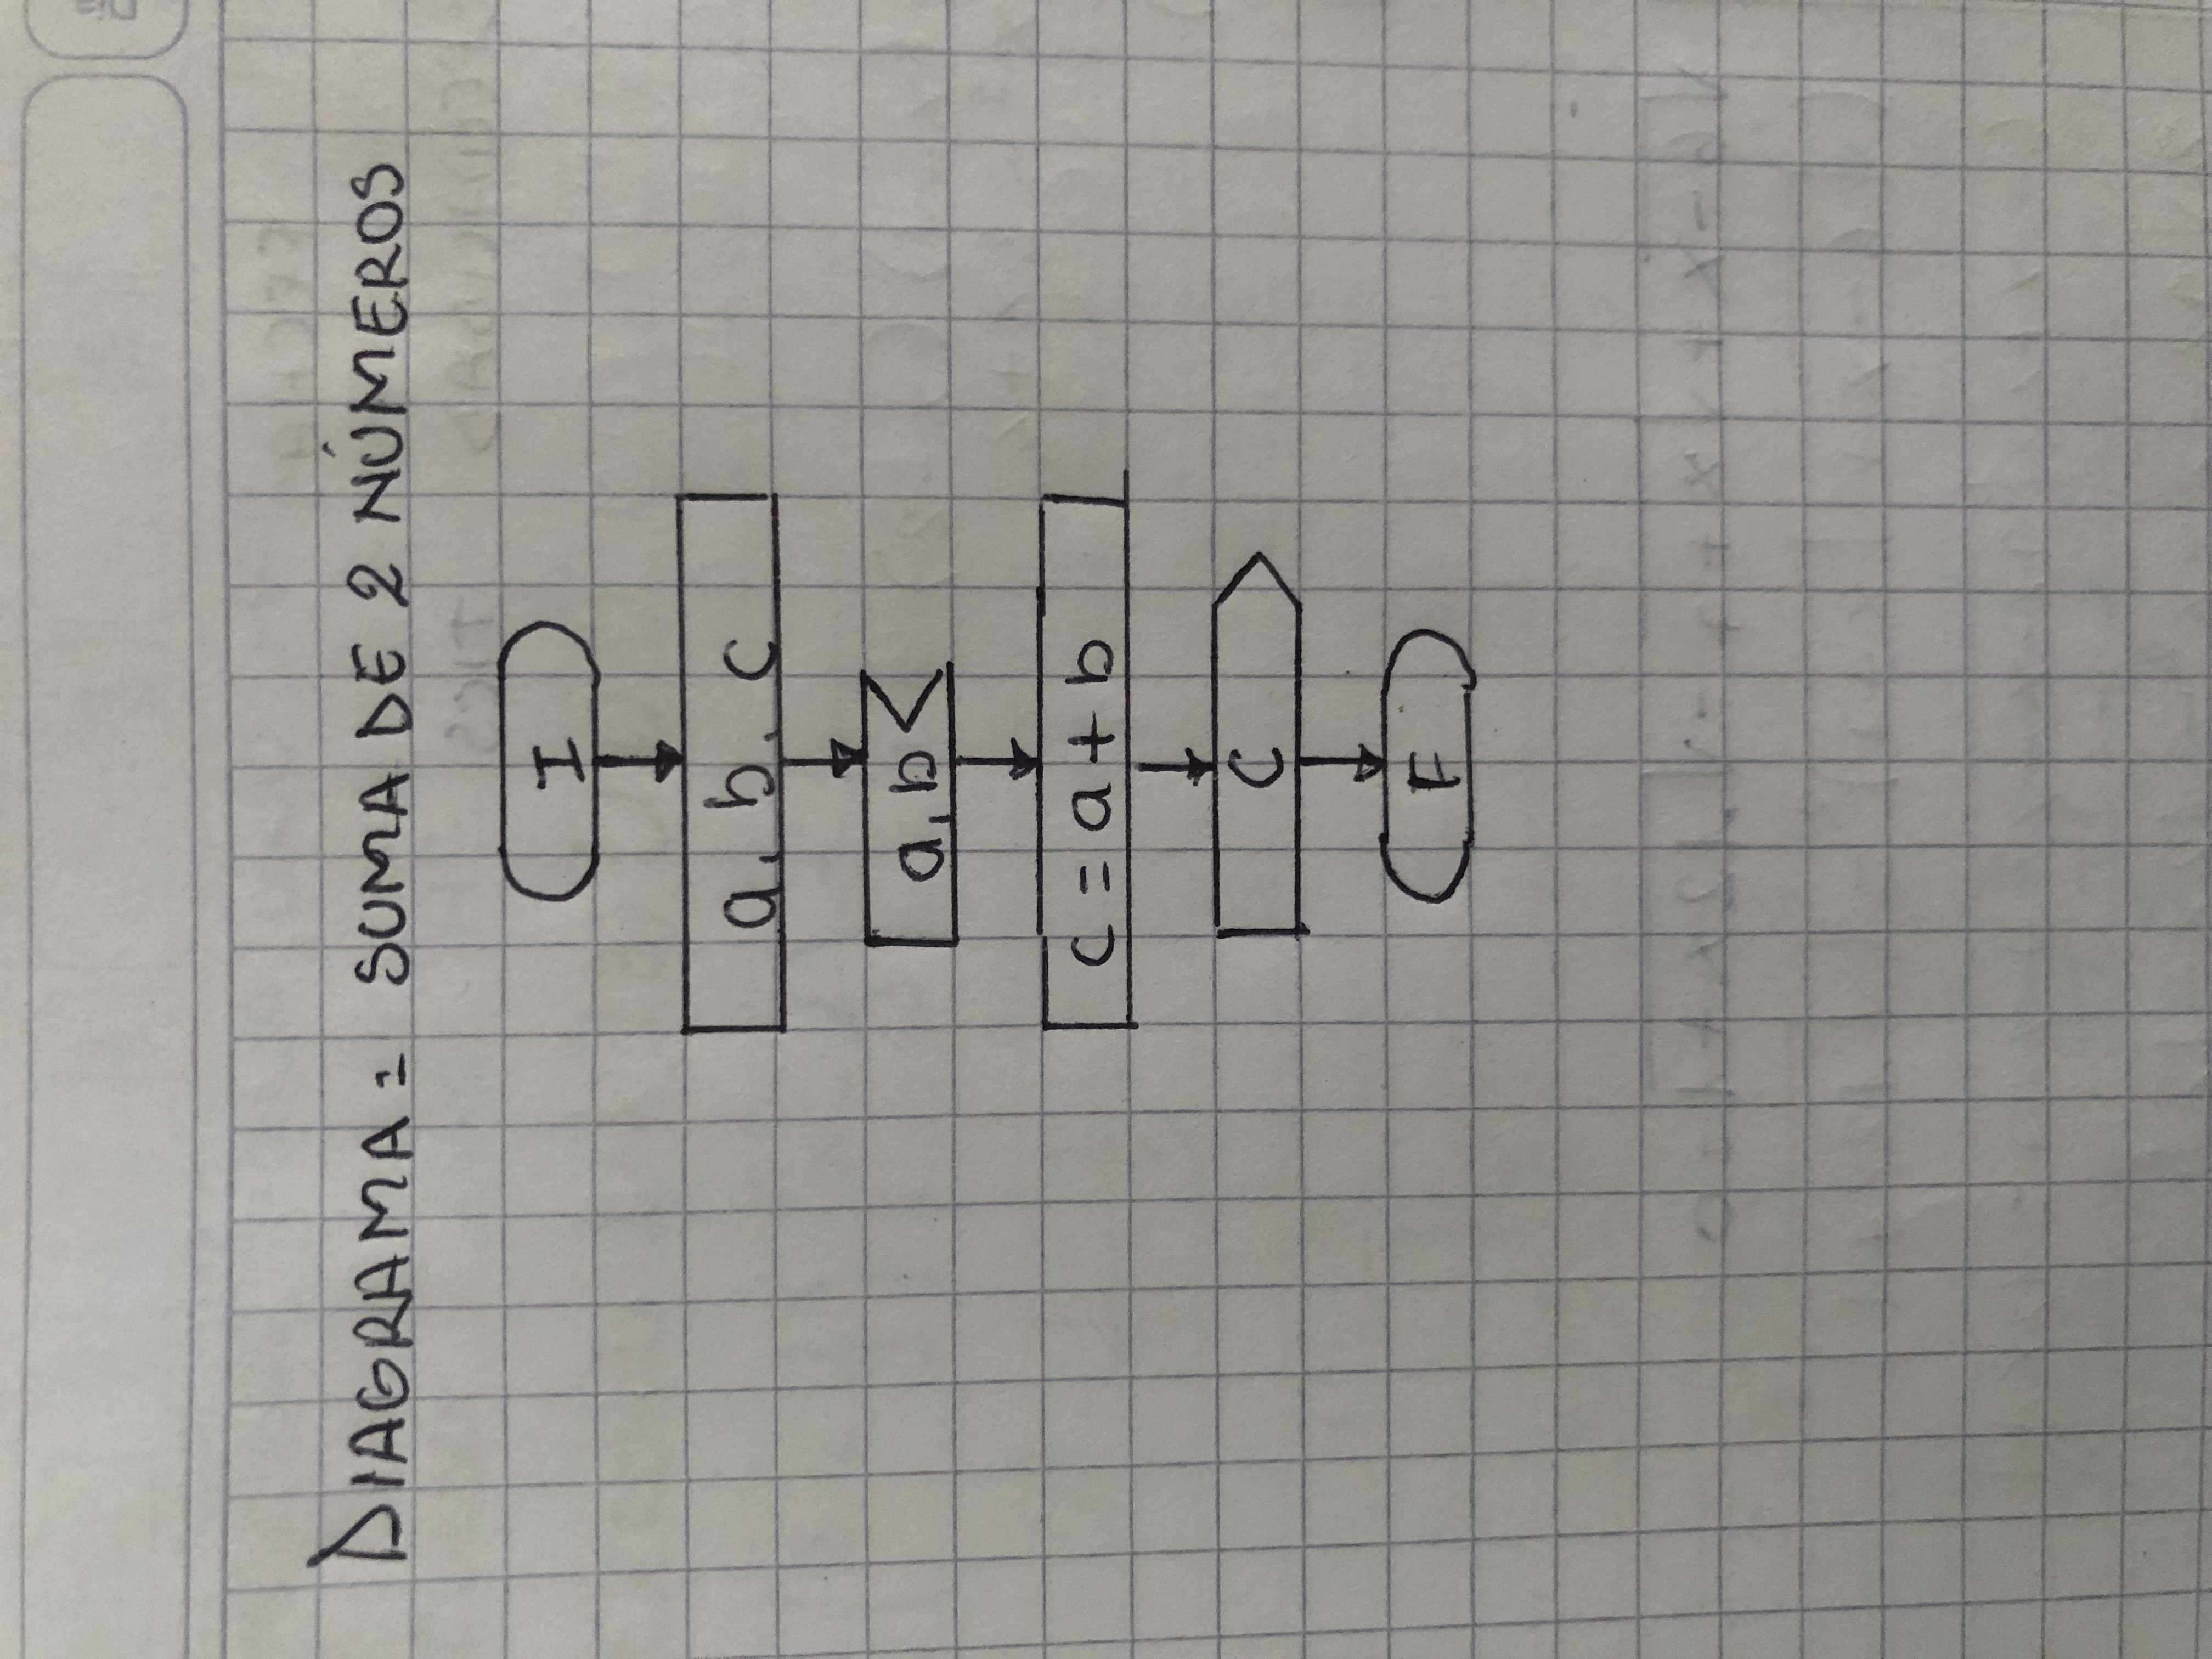 DIAGRAMA = SUMA DE 2 NÚMEROS
I
a, b, c
a, b
c = a + b
C
F
Dia